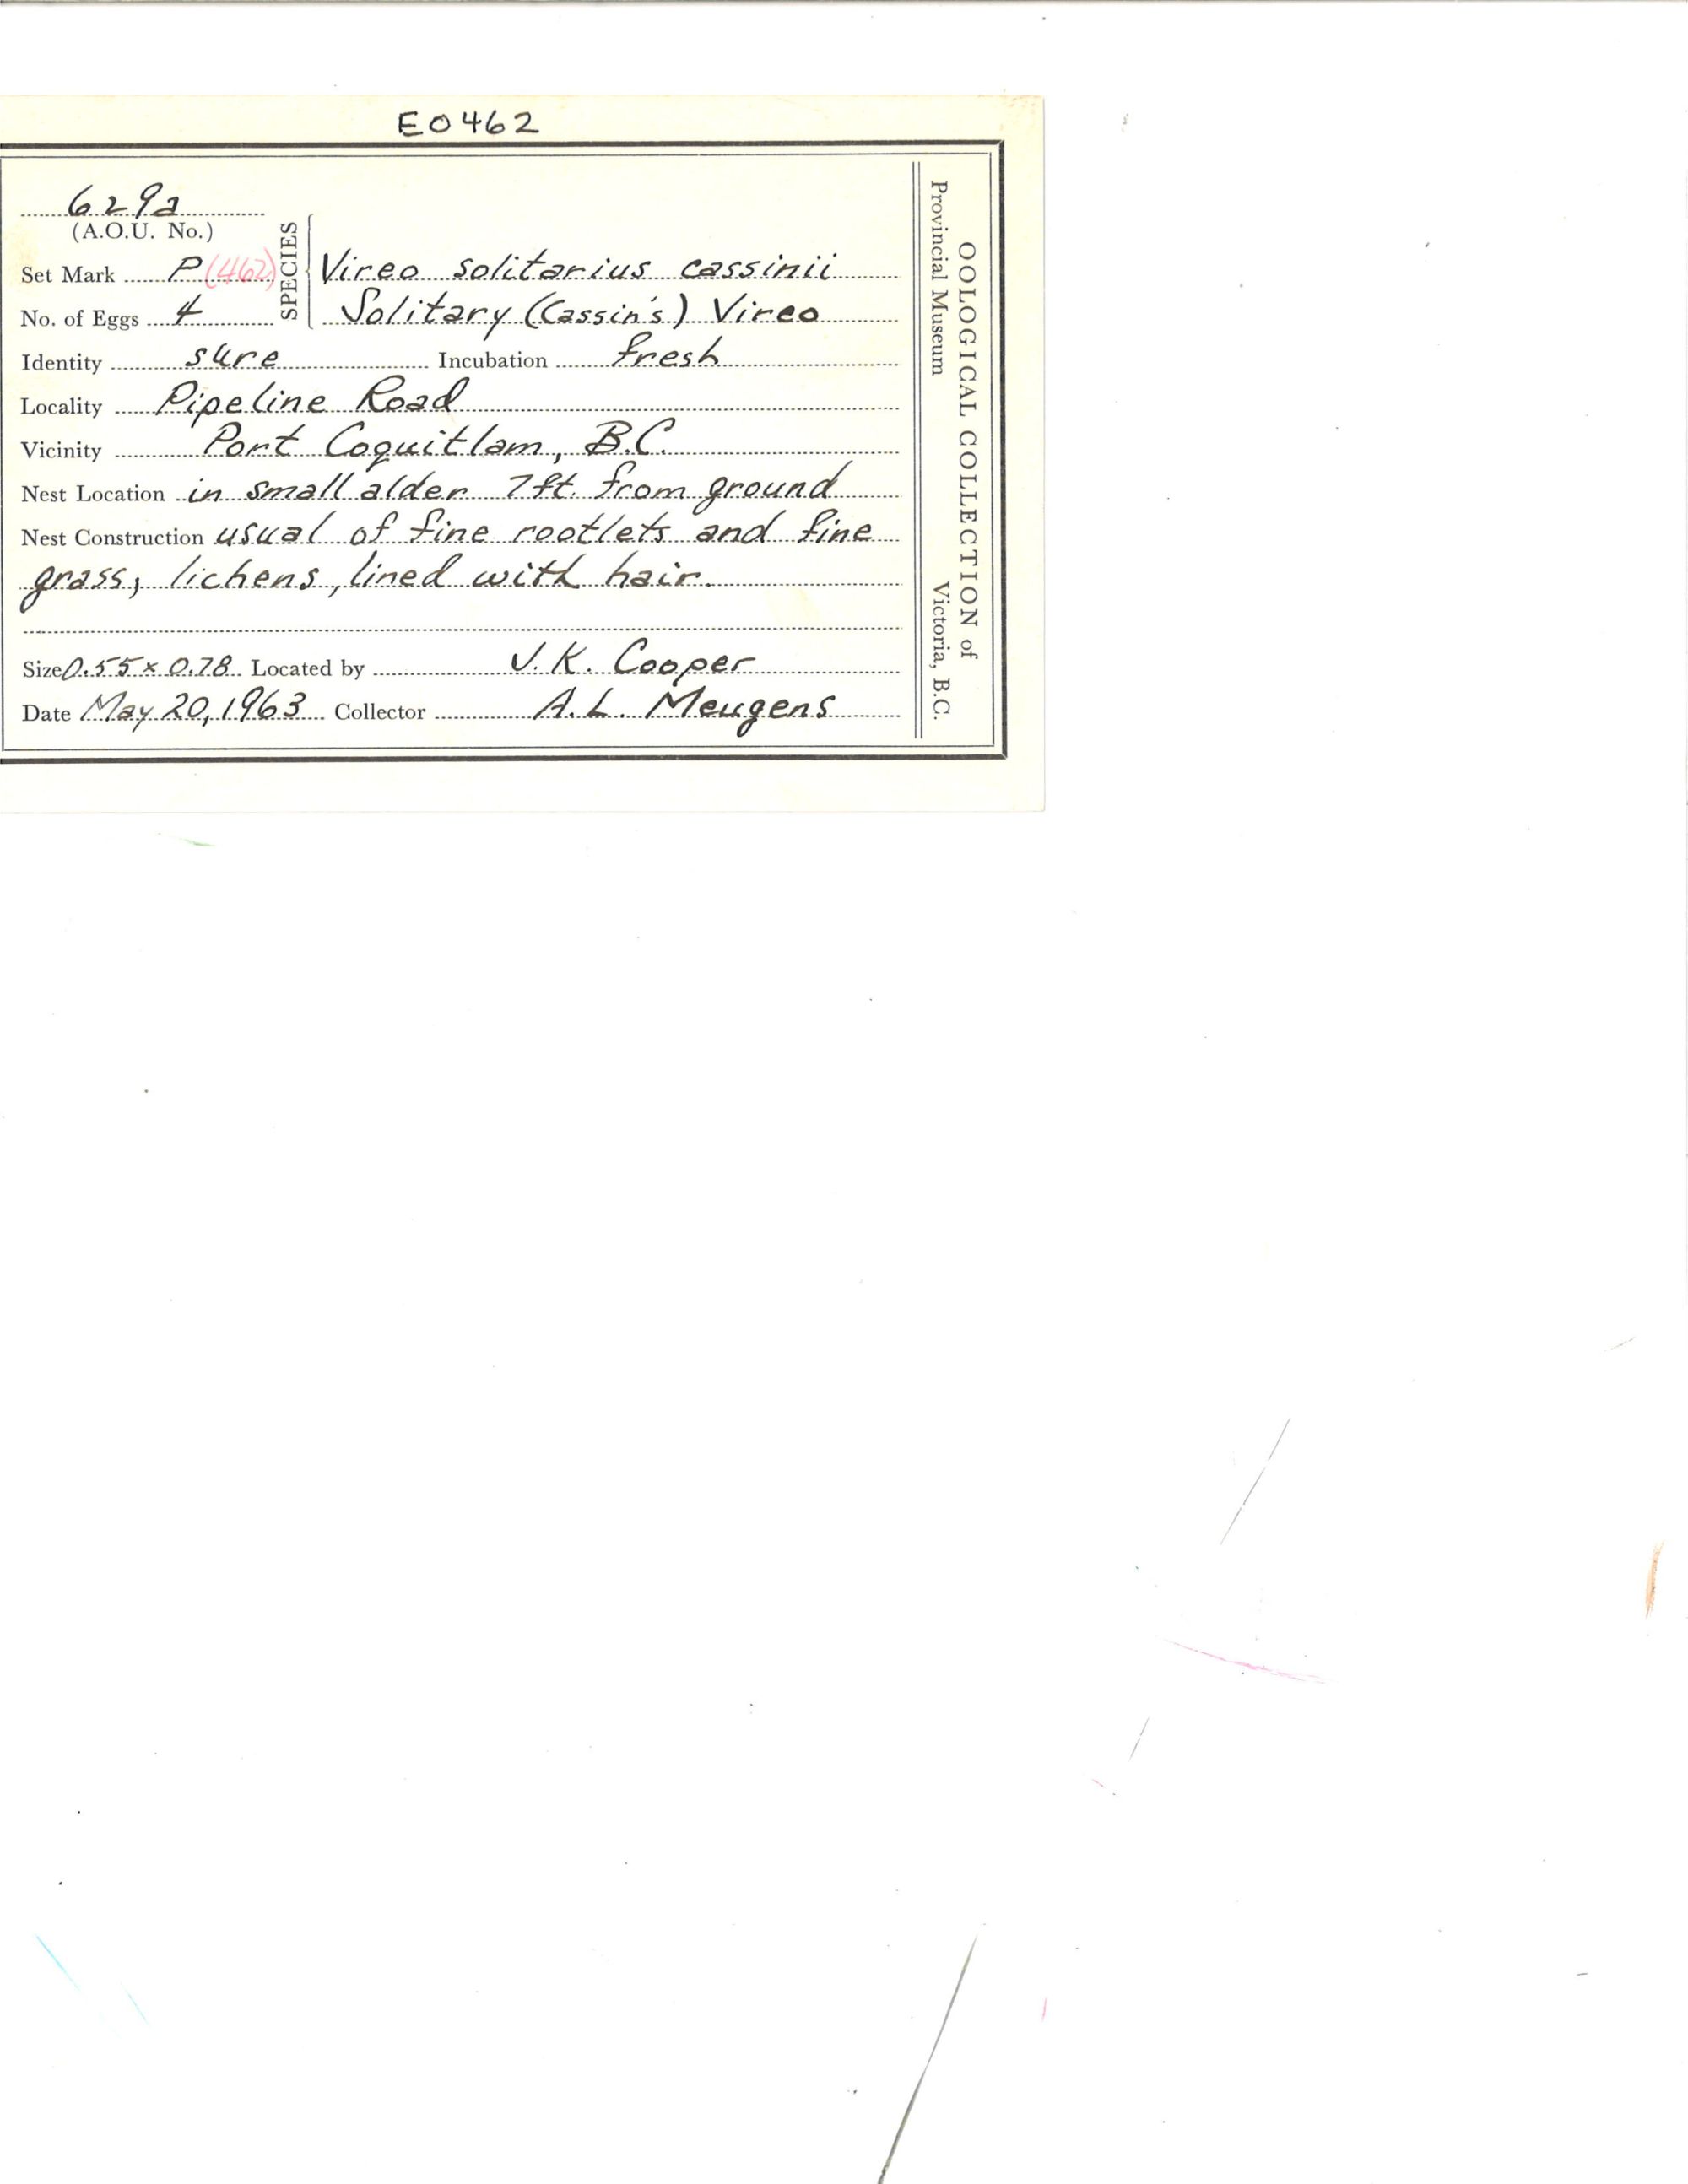 E0462
629a
(A.O.U. No.)
Set Mark P (462)
No. of Eggs 4
SPECIES
Vireo solitarius cassinii
Solitary (Cassin's) Vireo
Identity sure Incubation fresh
Locality Pipeline Road
Vicinity Port Coquitlam, B.C.
Nest Location in small alder 7ft. from ground
Nest Construction usual of fine rootlets and fine
grass, lichens, lined with hair.
Size 0.55 x 0.78 Located by J.K. Cooper
Date May 20, 1963 Collector A.L. Meugens
OOLOGICAL COLLECTION of
Provincial Museum Victoria, B.C.